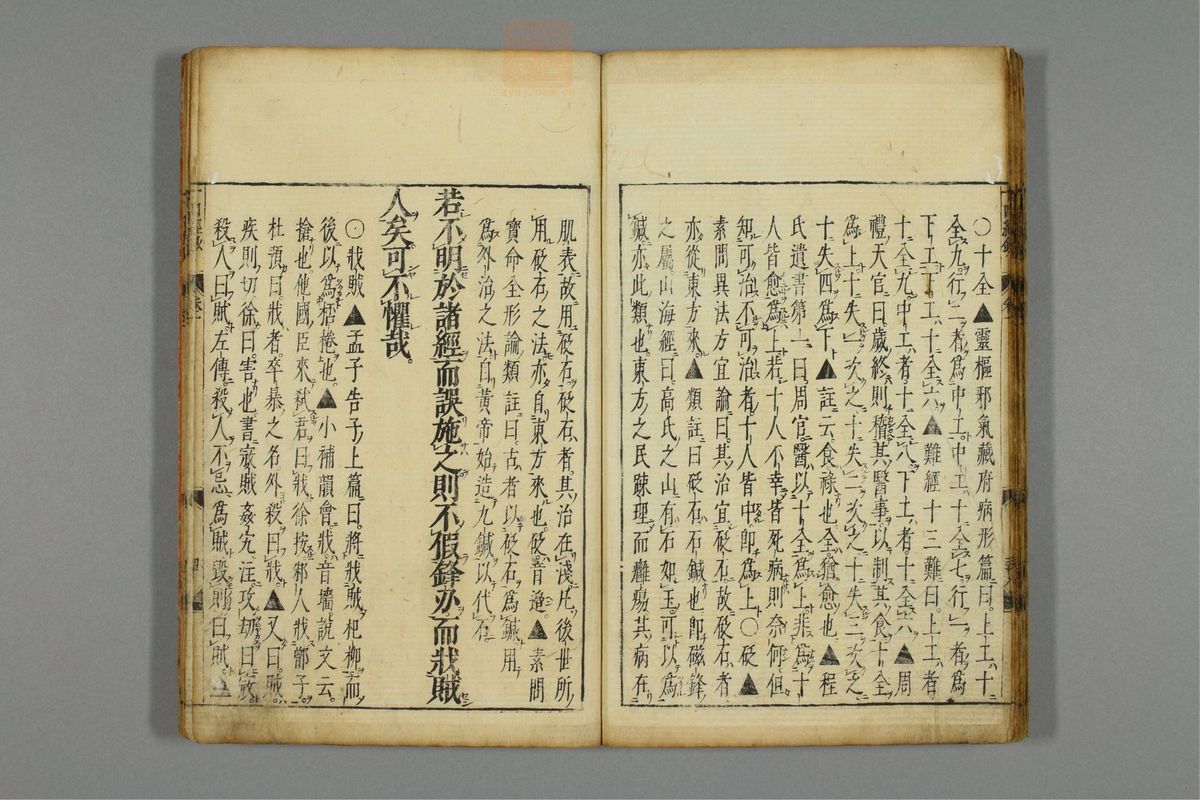 〇十全▲靈樞邪氣藏府病形篇曰上工十
全九行二者爲中工中工十全七行一者爲
下工下工十全六▲難經十三難曰上工者
十全九中工者十全八下工者十全六▲周
禮天官曰歲終則稽其醫事以制其食十全
爲上十失一次之十失二次之十失三次之
十失四爲下▲註云食祿也全猶愈也▲程
氏遺書第二曰周官醫以十全爲上非爲十
人皆愈爲上若十人不幸皆死病則奈何但
知可治不可治者十人皆中即爲上〇砭▲
素問異法方宜論曰其治宜砭石故砭石者
亦從東方來▲類註曰砭石石鍼也即磁鋒
之屬山海經曰高氏之山有石如玉可以爲
鍼亦此類也東方之民踈理而癰瘍其病在
肌表故用砭石砭石者其治在淺凡後世所
用砭石之法亦自東方來也砭音邉▲素問
寳命全形論類註曰古者以砭石爲鍼用
爲外治之法自黃帝始造九鍼以代石
若不明於諸經而誤施之則不假鋒刃而戕賊
人矣可不懼哉
⊙戕賊▲孟子告子上篇曰將戕賊杞柳而
後以爲桮棬也▲小補韻會戕音墻說文云
搶也他國臣來弒君曰戕徐按邾人戕鄫子
杜預曰戕者卒暴之名外殺曰戕▲又曰賊
疾則切徐曰害也書寇賊姦宄注攻劫曰
殺人曰賊左傳殺人不忌爲賊毀則曰賊